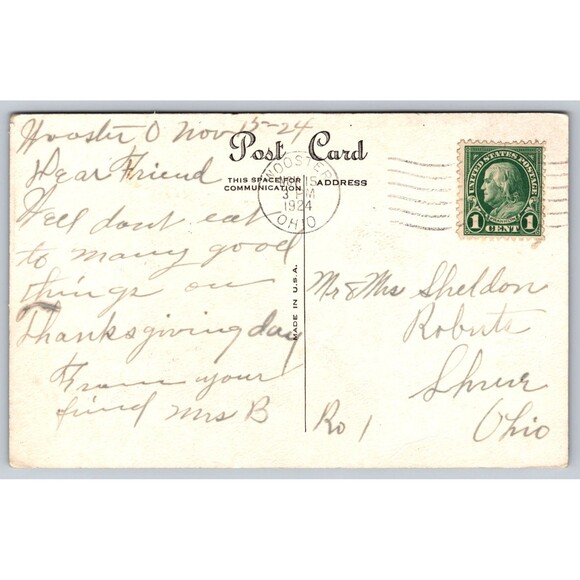 Wooster O Nov 15-24
Post Card
THIS SPACE FOR COMMUNICATION
ADDRESS
WOOSTER
NOV 15
3 PM
1924
OHIO
UNITED STATES POSTAGE
FRANKLIN
1 CENT 1
Dear Friend
Well dont eat
to many good
things on
Thanksgiving day
From your
friend Mrs B
MADE IN U.S.A.
Mr & Mrs Sheldon
Roberts
Shreve
Ohio
Ro 1